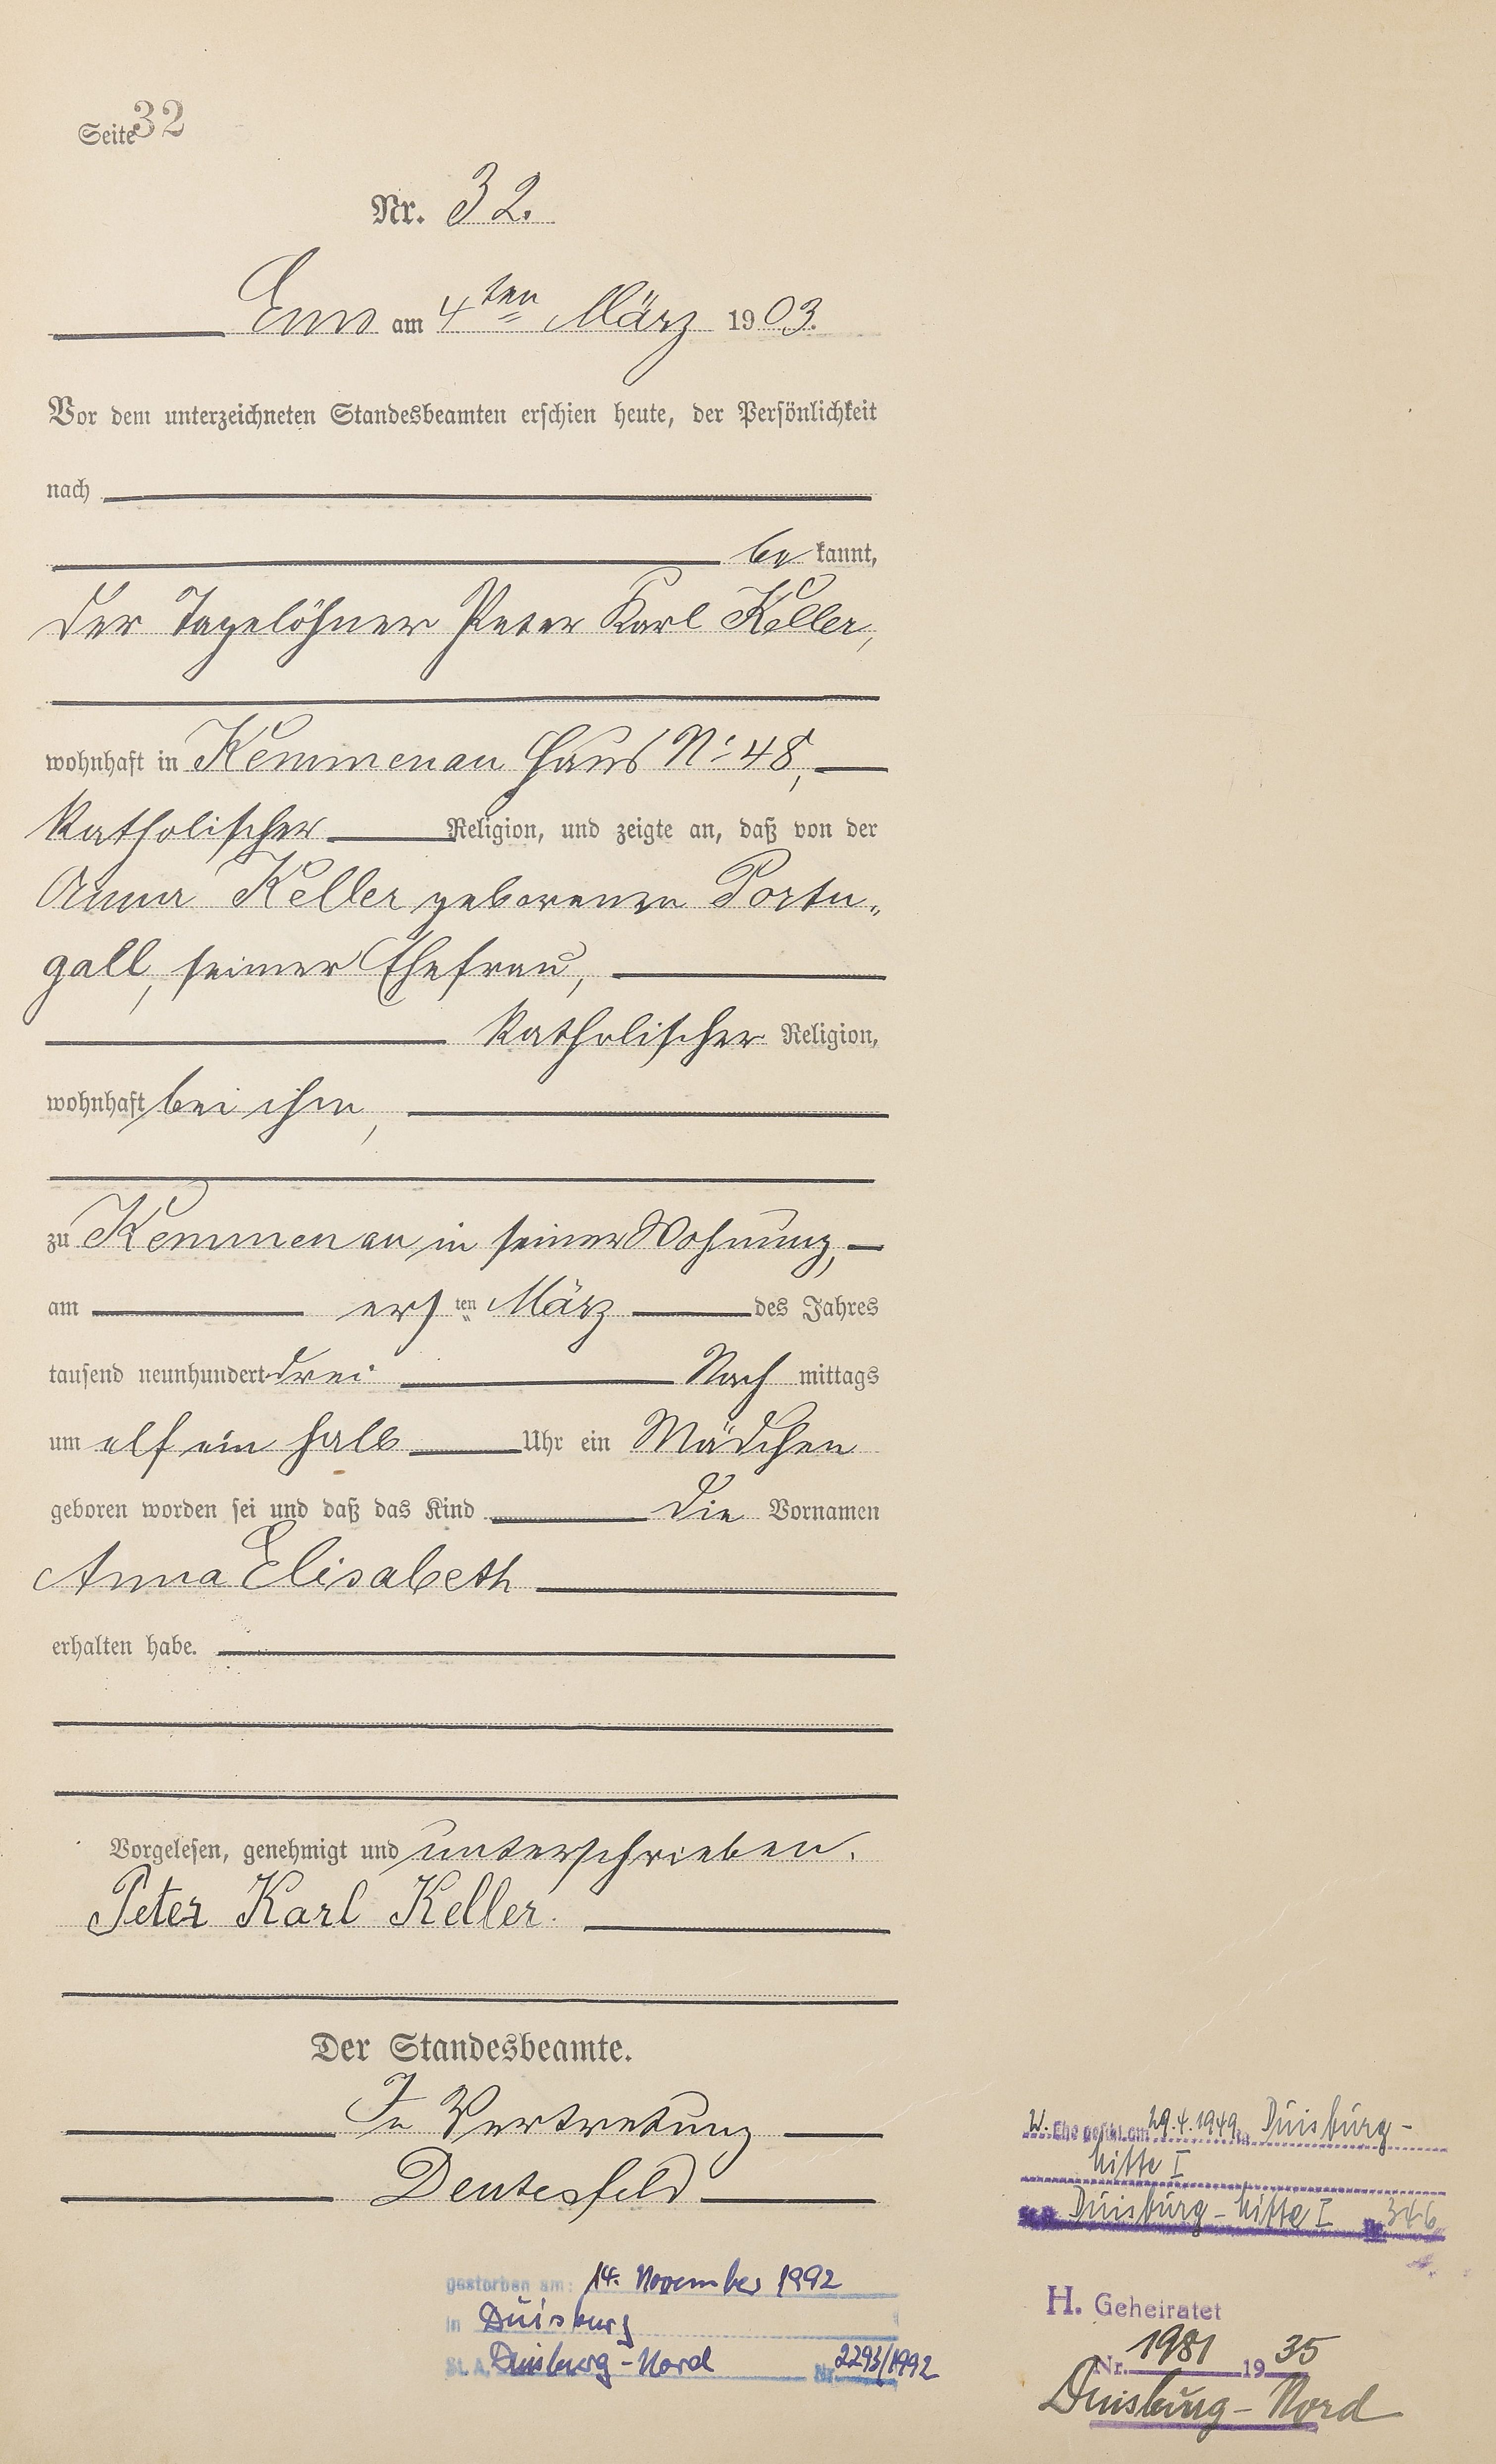 Seite 32
Nr. 32.
Ems am 4ten März 1903.
Vor dem unterzeichneten Standesbeamten erschien heute, der Persönlichkeit
nach
be kannt,
der Tagelöhner Peter Karl Keller,
wohnhaft in Kemmenau Haus No 48,
katholischer Religion, und zeigte an, daß von der
Anna Keller geborenen Portu„
gall, seiner Ehefrau,
katholischer Religion,
wohnhaft bei ihm,
zu Kemmenau in seiner Wohnung,
am ersten März des Jahres
tausend neunhundert drei Nach mittags
um elf ein halb Uhr ein Mädchen
geboren worden sei und daß das Kind die Vornamen
Anna Elisabeth
erhalten habe.
Vorgelesen, genehmigt und unterschrieben.
Peter Karl Keller.
Der Standesbeamte.
In Vertretung
Deutesfeld
gestorben am: 14. November 1992
in Duisburg
St. A. Duisburg-Nord Nr. 2293/1992
W. Ehe geschl. am 29.4.1949 in Duisburg-
Mitte I
St.A. Duisburg-Mitte I Nr. 346
H. Geheiratet
Nr. 1981 1935
Duisburg-Nord